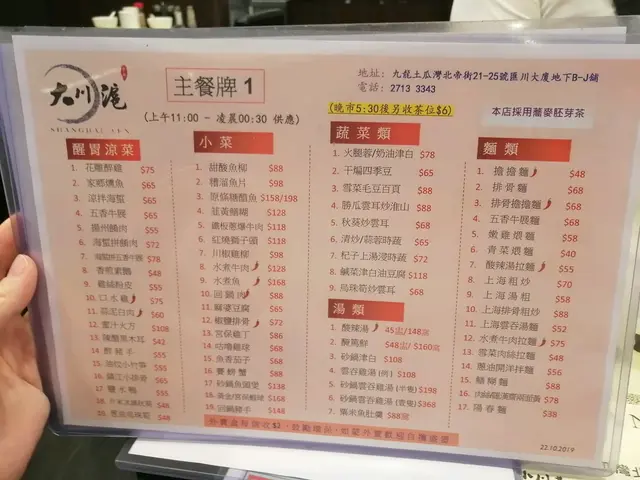 大川滬
SHANGHAI YEN
主餐牌 1
(上午11:00 - 凌晨00:30 供應)
地址: 九龍土瓜灣北帝街21-25號匯川大廈地下B-J鋪
電話: 2713 3343
(晚市5:30後另收茶位$6)
本店採用蕎麥胚芽茶
醒胃涼菜
1. 花雕醉雞 $75
2. 家鄉燻魚 $65
3. 涼拌海蜇 $65
4. 五香牛展 $65
5. 揚州餚肉 $55
6. 海蜇拼餚肉 $72
7. 海蜇拼五香牛展 $78
8. 香煎素鵝 $48
9. 雞絲粉皮 $55
10. 口水雞 $75
11. 蒜泥白肉 $60
12. 蜜汁火方 $108
13. 陳醋黑木耳 $42
14. 醉豬手 $55
15. $55
16. 鎮江小排骨 $65
17. 鹽水鴨 $55
18. $48
19. $48
小菜
1. 甜酸魚柳 $88
2. 糟溜魚片 $98
3. 原條糖醋魚 $158/198
4. 弦黃蝴蝴 $128
5. 鐵板蔥爆牛肉 $118
6. 紅燒獅子頭 $118
7. 川椒雞柳 $98
8. 水煮牛肉 $128
9. 水煮魚 $168
10. 回鍋肉 $88
11. 麻婆豆腐 $65
12. 椒鹽排骨 $72
13. 宮保雞丁 $86
14. 咕嚕雞球 $68
15. 魚香茄子 $68
16. $88
17. 砂鍋魚頭煲 $138
18. $168
19. 回鍋豬手 $148
蔬菜類
1. 火腿蓉/奶油津白 $78
2. 干煸四季豆 $65
3. 雪菜毛豆百頁 $88
4. 勝瓜雲耳炒淮山 $88
5. 秋葵炒雲耳 $68
6. 清炒/蒜蓉時蔬 $65
7. 杞子上湯浸時蔬 $72
8. 鹹菜津白油豆腐 $118
9. 馬珠筍炒雲耳 $68
湯類
1. 酸辣湯 45盅/148窩
2. 醃篤鮮 $48盅/ $160窩
3. 砂鍋津白 $108
4. 雲吞雞湯 (例) $108
5. 砂鍋雲吞雞湯 (半隻) $198
6. 砂鍋雲吞雞湯 (壹隻) $368
7. 粟米魚肚羹 $88窩
麵類
1. 擔擔麵 $48
2. 排骨麵 $68
3. 排骨擔擔麵 $68
4. 五香牛肉麵 $68
5. 嫩雞煨麵 $58
6. 青菜煨麵 $40
7. 酸辣湯拉麵 $55
8. 上海粗炒 $70
9. 上海湯粗 $58
10. 上海排骨粗炒 $88
11. 上海雲吞湯麵 $52
12. 水煮牛肉拉麵 $75
13. 雪菜肉絲拉麵 $48
14. 蔥油開洋拌麵 $56
15. $88
16. $78
17. 陽春麵 $38
22.10.2019